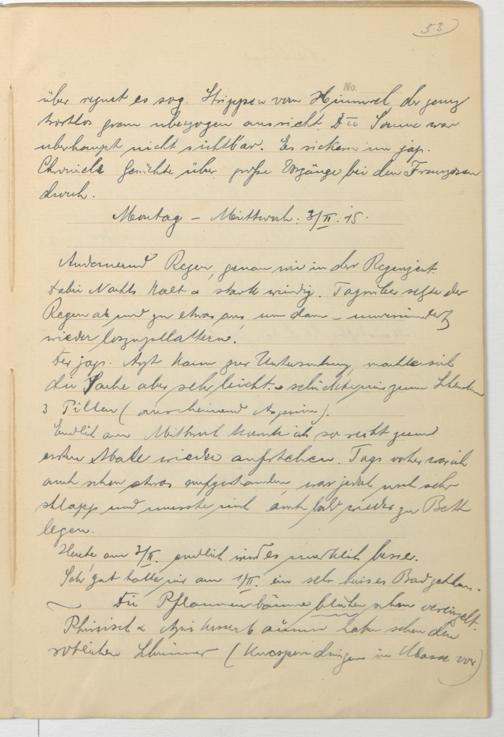 53
No.
über regnet es sog. Strippen vom Himmel, der ganz
trostlos grau überzogen aussieht. Die Sonne war
überhaupt nicht sichtbar. Es sickern im jap.
Chronicle Gerüchte über große Vorgänge bei den Franzosen
durch.
Montag – Mittwoch: 3/II. 15.
Andauernd Regen, genau wie in der Regenzeit.
Dabei Nachts kalt u stark windig. Tagsüber setzte der
Regen ab und zu etwas aus um dann – unvermindert
wieder loszuplattern.
Der jap. Arzt kam zur Untersuchung, machte sich
die Sache aber sehr leicht u schickte mir zum
3 Pillen (anscheinend Aspirin).
Endlich am Mittwoch konnte ich so recht zum
ersten Male wieder aufstehen. Tags vorher war ich
auch schon etwas aufgestanden, war jedoch noch sehr
schlapp und musste mich auch bald wieder zu Bett
legen.
Heute am 3/II. endlich wird es merklich besser.
Sehr gut hatte mir am 1/II. ein sehr heisses Bad gethan.
Die Pflaumenbäume blühen schon vereinzelt.
Pfirsich u Aprikosenbäume haben schon den
rötlichen Schimmer (Knospen dringen in Masse vor)